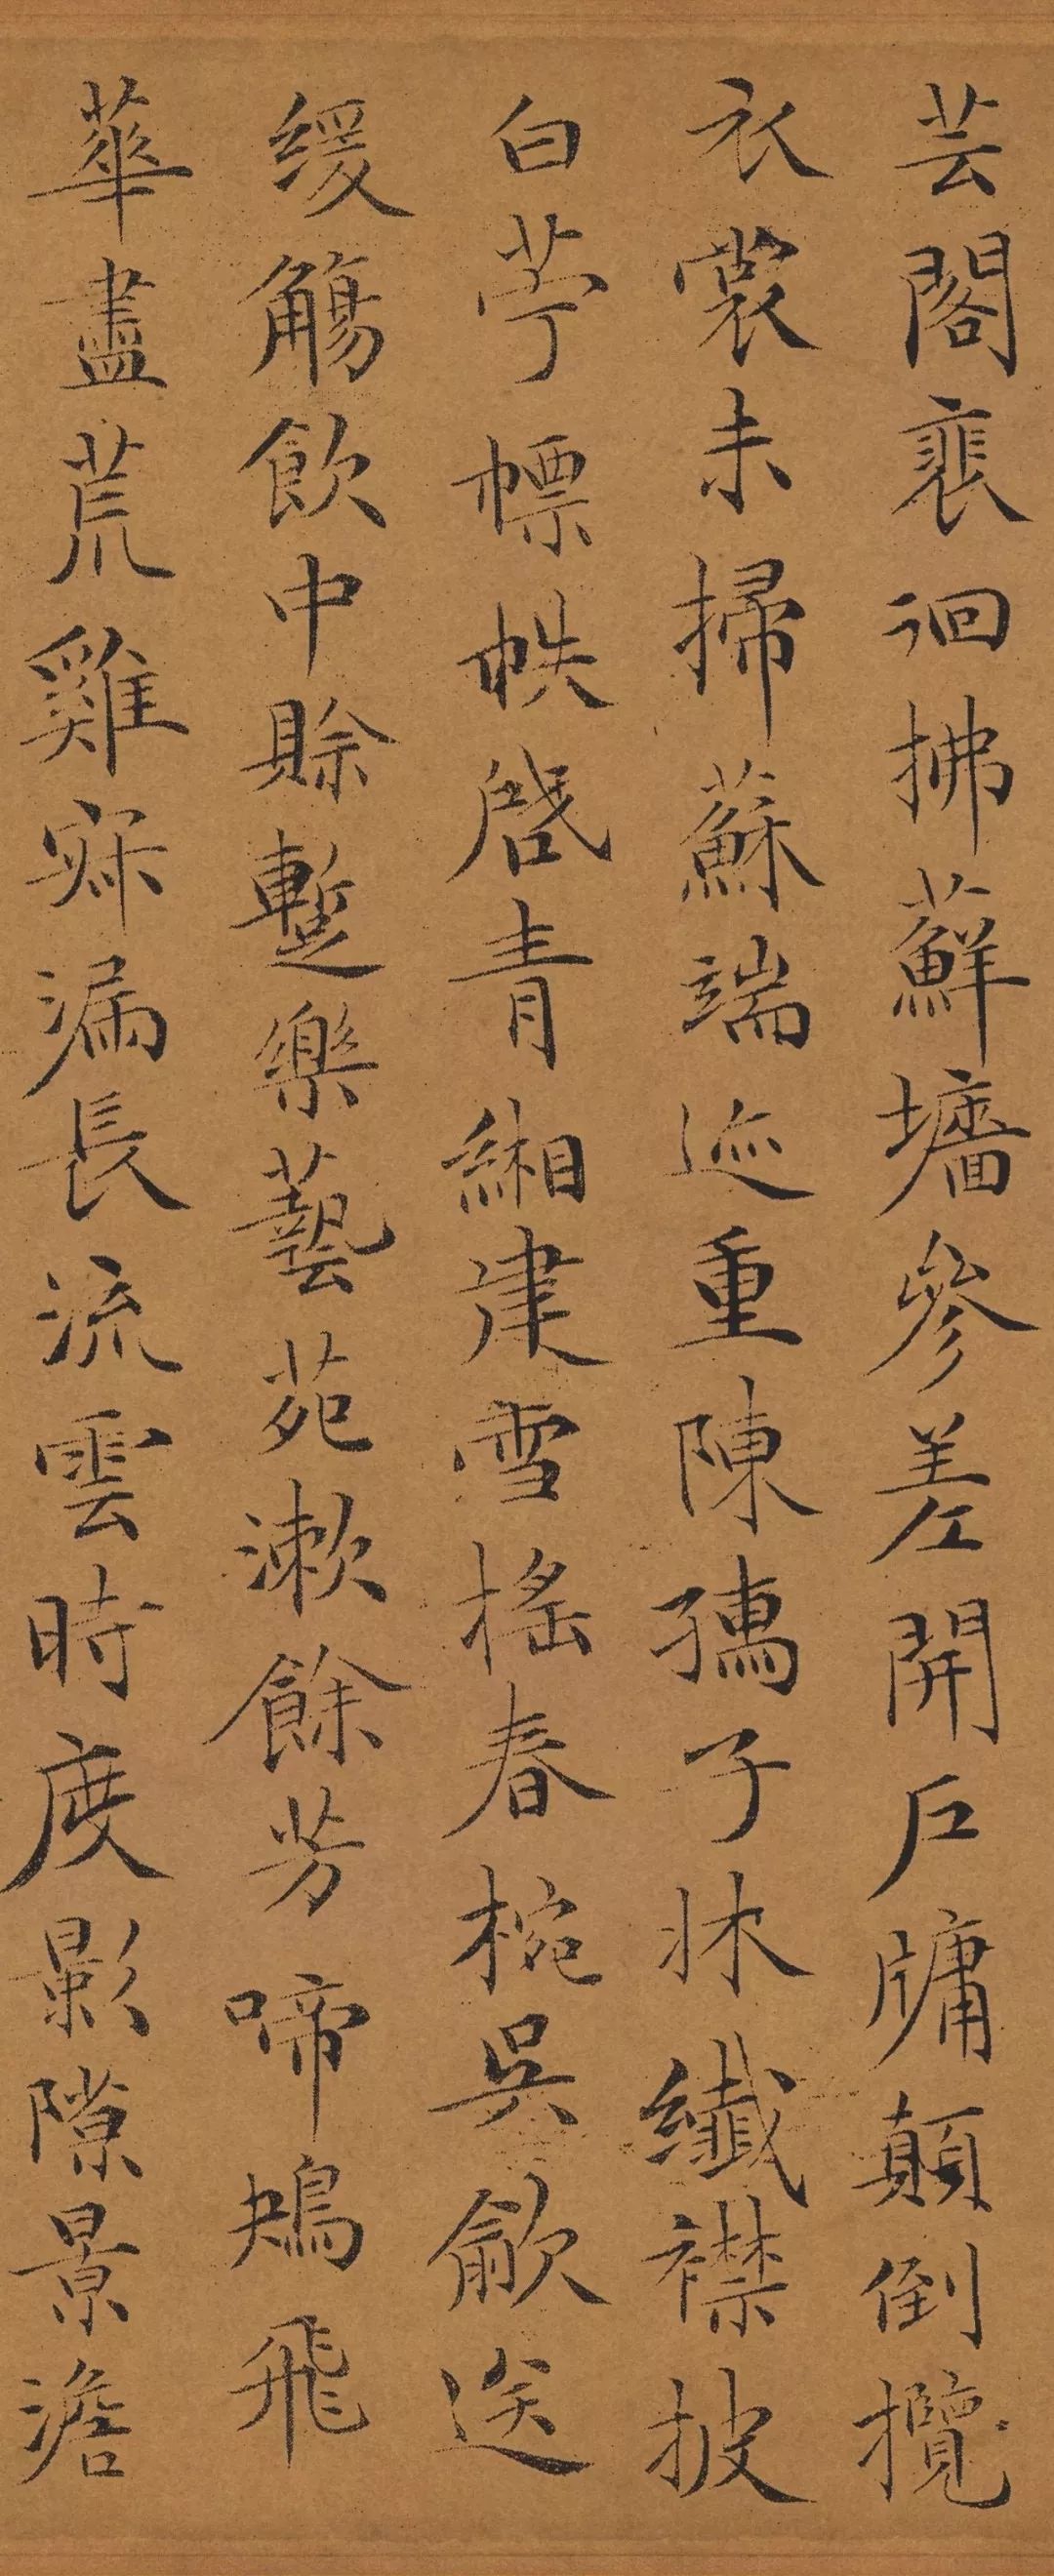 芸閣裵徊拂蘚墻參差開戶牗顛倒攬
衣裳未掃蘇端迹重陳孺子牀纖襟披
白苧幖帙啓青緗建雪搖春椀吳歈送
緩觴飲中賒蹔樂藝苑漱餘芳啼鴂飛
華盡荒雞寐漏長流雲時度影隙景澹